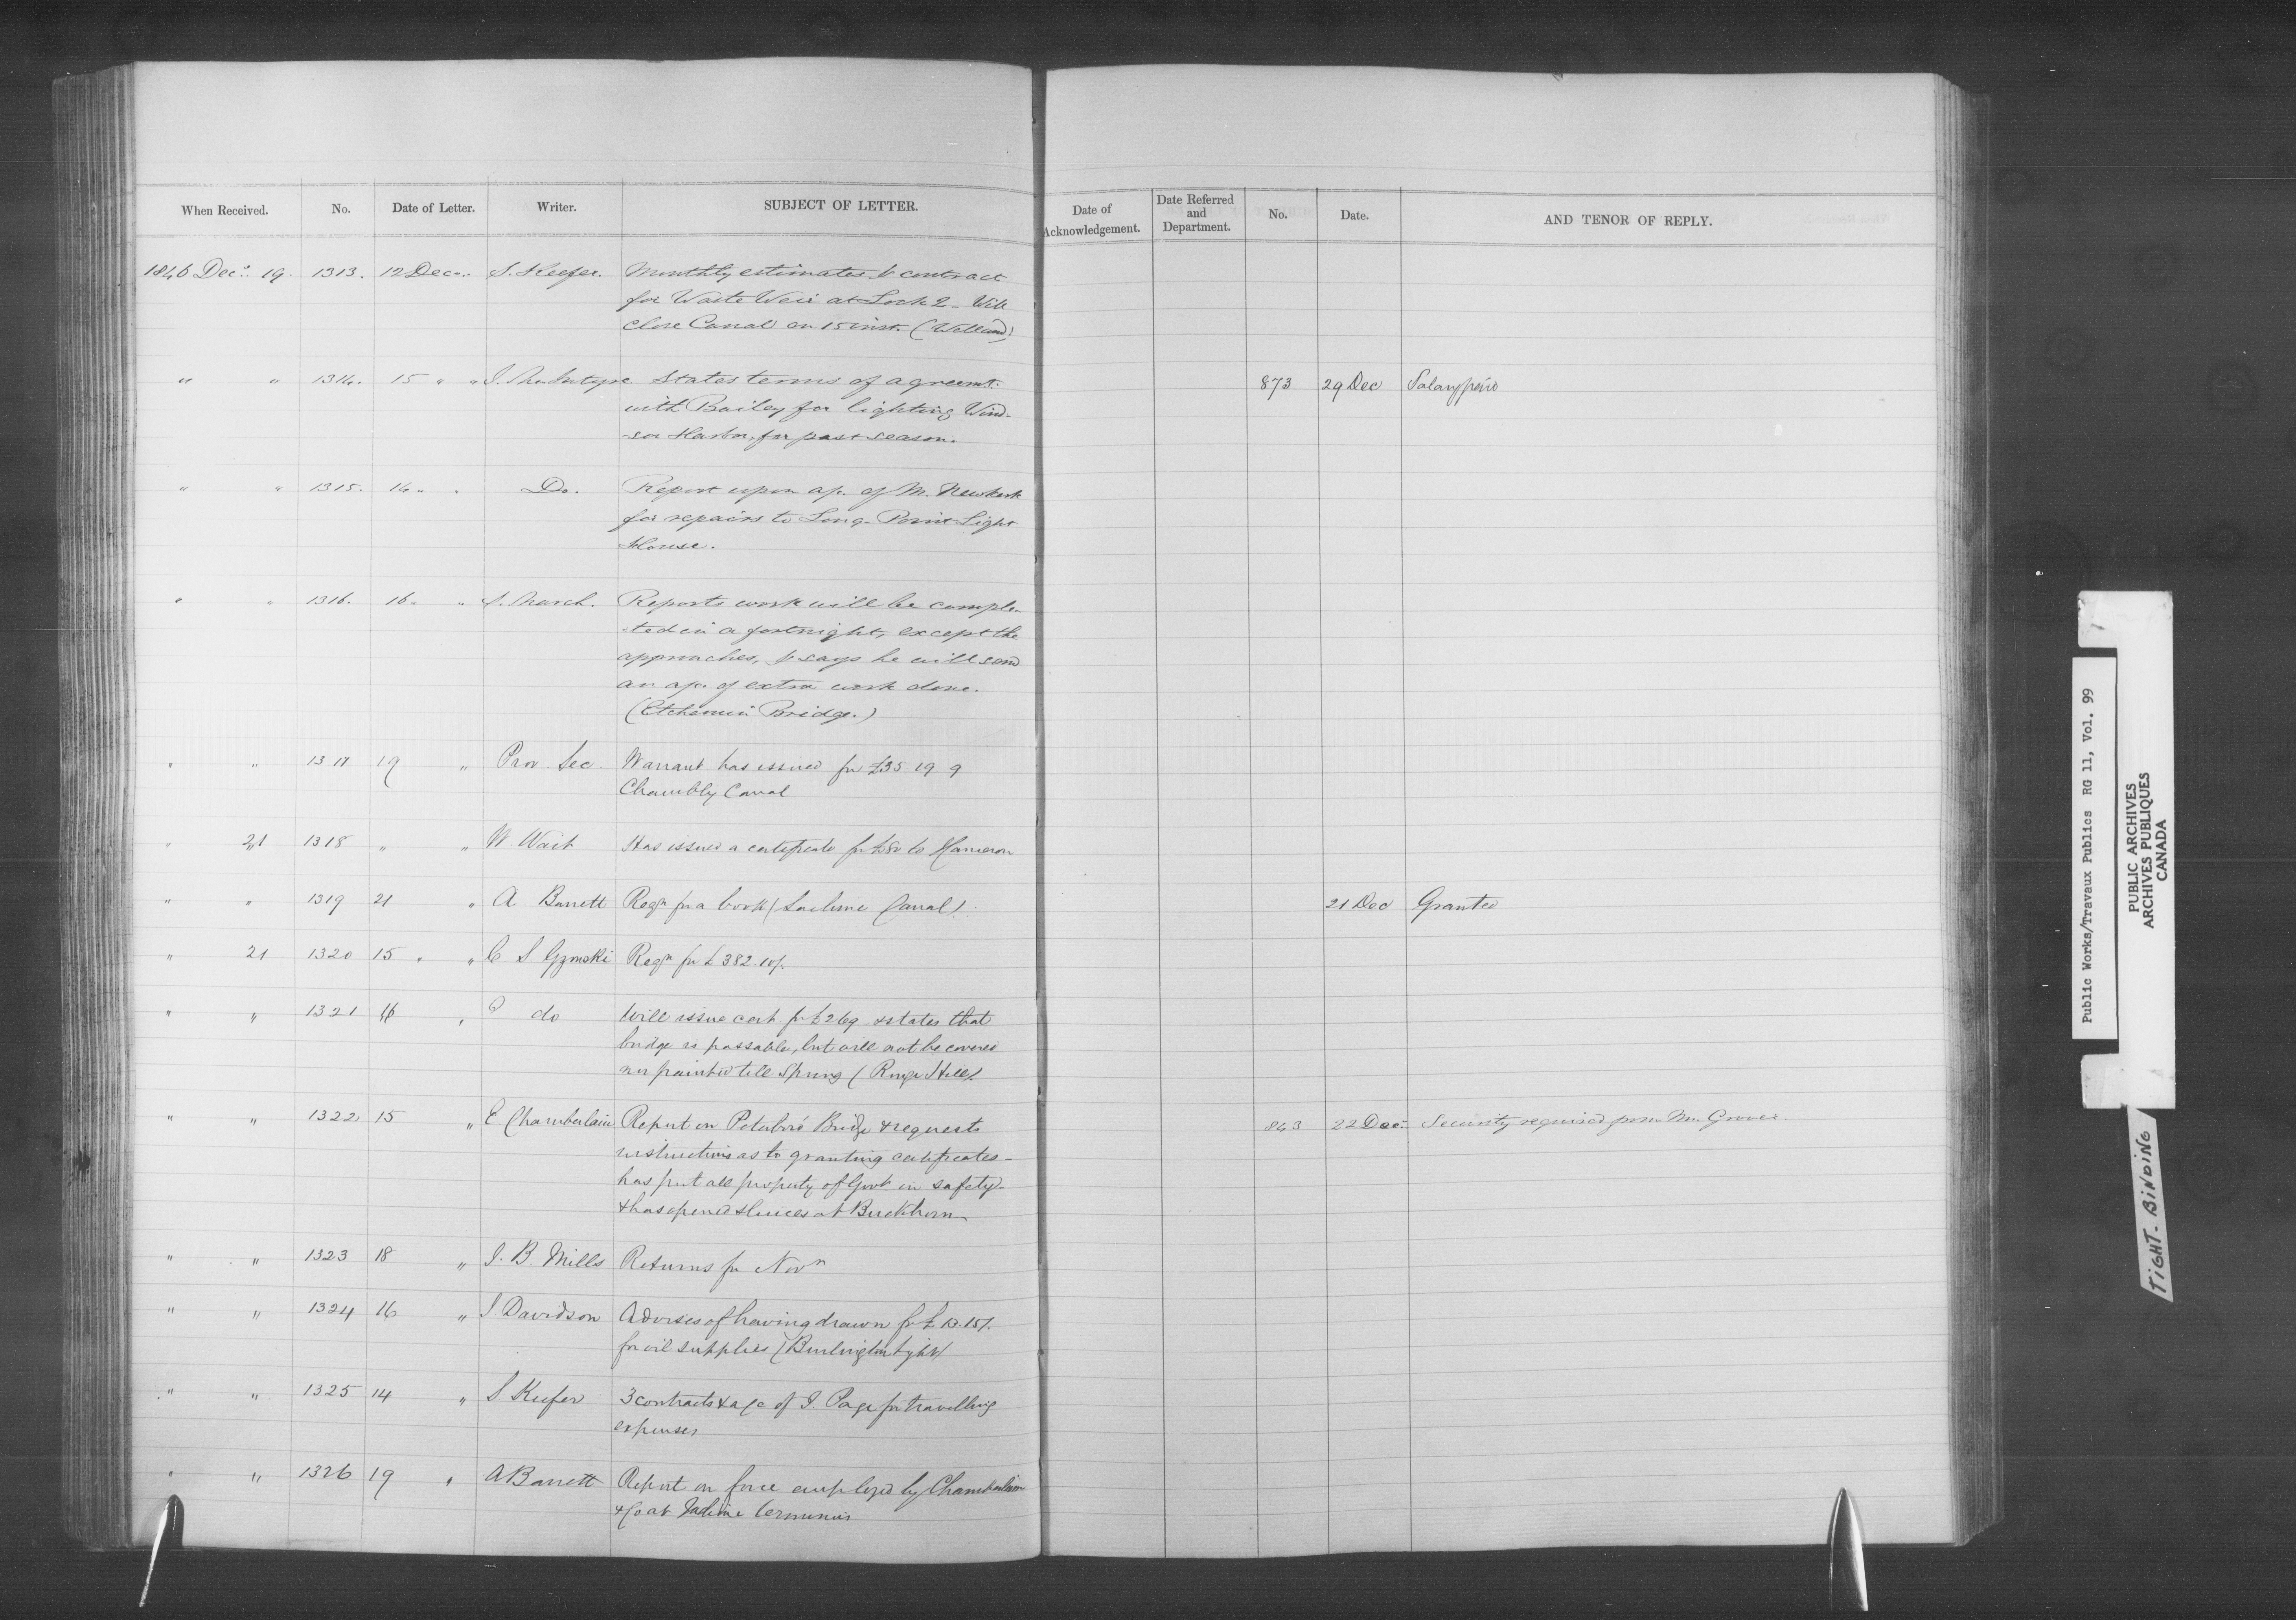 When Received. No. Date of Letter. Writer. SUBJECT OF LETTER.
Date of Acknowledgement. Date Referred and Department. No. Date. AND TENOR OF REPLY.
1846 Decr. 19. 1313. 12 Decr. S. Keefer. Monthly estimates & contract
for Waste Weir at Lock 2 - Will
close Canal on 15 inst. (Welland)
" " 1314. 15 " " States terms of agreemt. 873 29 Dec Salary paid
with Bailey for lighting Wind-
-sor Harbor, for past season.
" " 1315. 14 " " Do. Report upon a/c. of M. Newkirk
for repairs to Long-Point Light
House.
" " 1316. 16 " Reports work will be comple-
-ted in a fortnight, except the
approaches, & says he will send
an a/c. of extra work done.
(Etchemin Bridge.)
" " 1317 19 " Prov. Sec. Warrant has issued for £35.19.9
Chambly Canal
" 21 1318 " " W. Wait Has issued a certificate for £80 to Cameron
" " 1319 21 " A Barrett Reqn. for a book (Lachine Canal). 21 Dec Granted
" 21 1320 15 " " C S Gzowski Reqn for £382.10/.
" " 1321 16 " do Will issue cert. for £269 & states that
bridge is passable, but will not be covered
nor painted till Spring (Rouge Hill).
" " 1322 15 " E Chamberlain Report on Peterboro Bridge & requests 843 22 Dec. Security required from Mr. Grover.
instructions as to granting certificates -
has put all property of Govt in safety -
& has opened sluices at Buckhorn
" " 1323 18 " J. B. Mills Returns for Novr
" " 1324 16 " J. Davidson Advises of having drawn for £13.15/.
for oil supplies (Burlington Light)
" " 1325 14 " S Keefer 3 contracts & a/c of J. Page for travelling
expenses
" " 1326 19 " A Barrett Report on force employed by Chamberlain
& Co at Lachine terminus
Public Works/Travaux Publics RG 11, Vol. 99
PUBLIC ARCHIVES
ARCHIVES PUBLIQUES
CANADA
TIGHT BINDING